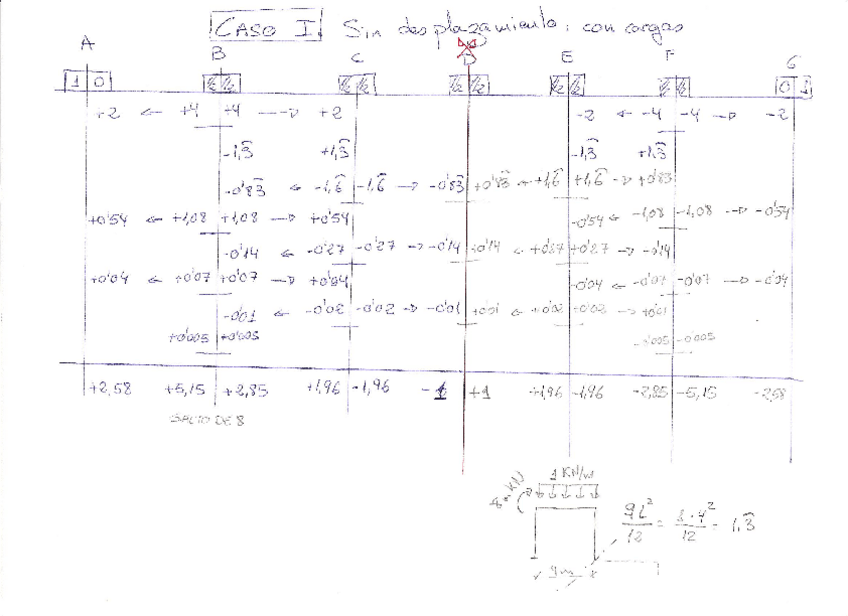 CASO I. Sin desplazamiento: con cargas
A B C D E F G
1 0 ½ ½ ½ ½ ½ ½ ½ ½ ½ ½ 0 1
+2 ← +4 +4 → +2 -2 ← -4 -4 → -2
-1,3̂ +1,3̂ -1,3̂ +1,3̂
-0'83̂ ← -1,6̂ -1,6̂ → -0'83̂ +0'83̂ ← +1,6̂ +1,6̂ → +0'83
+0'54 ← +1,08 +1,08 → +0'54 -0'54 ← -1,08 -1,08 → -0'54
-0'14 ← -0'27 -0'27 → -0'14 +0'14 ← +0'27 +0'27 → -0'14
+0'04 ← +0'07 +0'07 → +0'04 -0'04 ← -0'07 -0'07 → -0'04
-0'01 ← -0'02 -0'02 → -0'01 +0'01 ← +0'02 +0'02 → +0'01
+0'005 +0'005 -0'005 -0'005
+2,58 +5,15 +2,85 +1,96 -1,96 -1 +1 +1,96 -1,96 -2,85 -5,15 -2,58
SALTO DE 8
1 KN/m
qL²/12 = 1·4²/12 = 1,3̂